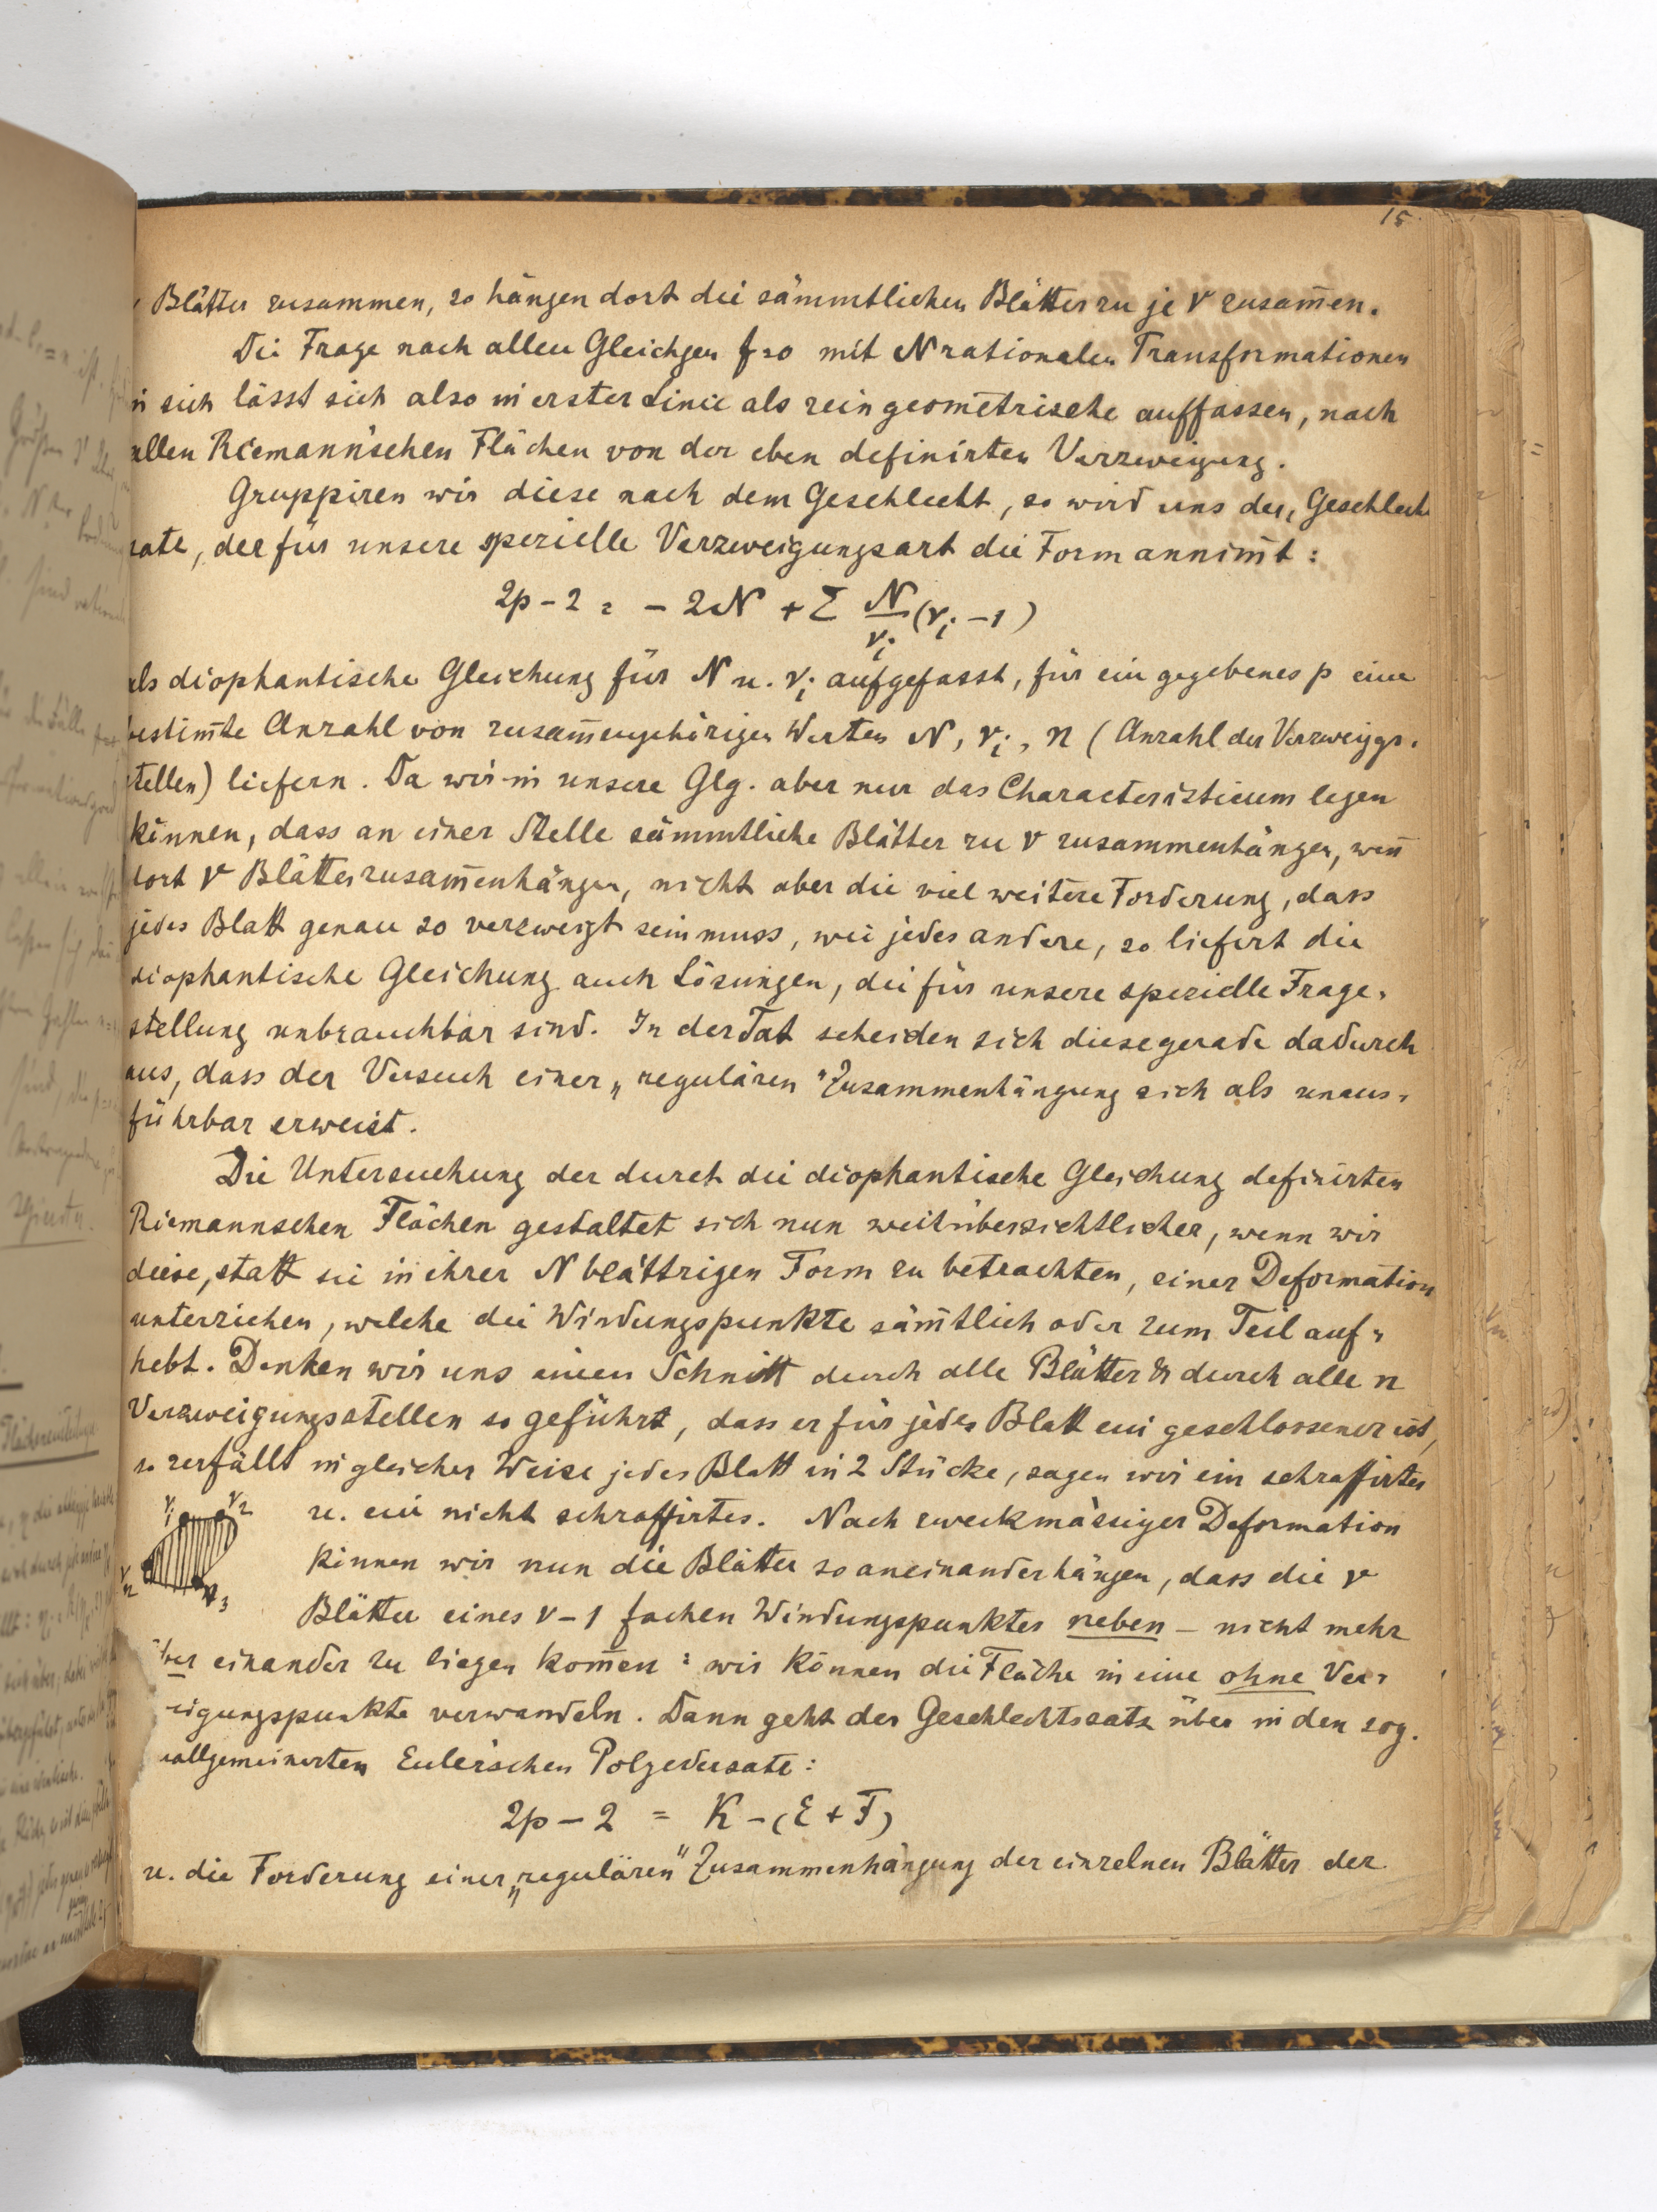 15.
ν Blätter zusammen, so hängen dort die sämmtlichen Blätter zu je ν zusam̅en.
Die Frage nach allen Gleichgen f=0 mit N rationalen Transformationen
in sich lässt sich also in erster Linie als rein geometrische auffassen, nach
allen Riemann'schen Flächen von der eben definirten Verzweigung.
Gruppiren wir diese nach dem Geschlecht, so wird uns der „Geschlechts
satz, der für unsere spezielle Verzweigungsart die Form annim̅t:
2p-2 = -2N + Σ N/νi (νi -1)
als diophantische Gleichung für N u. νi aufgefasst, für ein gegebenes p eine
bestim̅te Anzahl von zusam̅engehörigen Werten N, νi, n (Anzahl der Verzweiggs-
stellen) liefern. Da wir in unsere Glg. aber nur das Characteristicum legen
können, dass an einer Stelle sämmtliche Blätter zu ν zusammenhängen, wen̅
dort ν Blätter zusam̅enhängen, nicht aber die viel weitere Forderung, dass
jedes Blatt genau so verzweigt sein muss, wie jedes andere, so liefert die
diophantische Gleichung auch Lösungen, die für unsere spezielle Frage-
stellung unbrauchbar sind. In der Tat scheiden sich diese gerade dadurch
aus, dass der Versuch einer „regulären" Zusammenhängung sich als unaus-
führbar erweist.
Die Untersuchung der durch die diophantische Gleichung definirten
Riemannschen Flächen gestaltet sich nun weit übersichtlicher, wenn wir
diese, statt sie in ihrer N blättrigen Form zu betrachten, einer Deformation
unterziehen, welche die Windungspunkte säm̅tlich oder zum Teil auf-
hebt. Denken wir uns einen Schnitt durch alle Blätter & durch alle n
Verzweigungsstellen so geführt, dass er für jedes Blatt ein geschlossener ist,
so zerfällt in gleicher Weise jedes Blatt in 2 Stücke, sagen wir ein schraffirtes
ν1 ν2 u. ein nicht schraffirtes. Nach zweckmässiger Deformation
νn ν3 können wir nun die Blätter so aneinanderhängen, dass die ν
Blätter eines ν-1 fachen Windungspunktes neben - nicht mehr
über einander zu liegen kom̅en: wir können die Fläche in eine ohne Ver-
eigungspunkte verwandeln. Dann geht der Geschlechtssatz über in den sog.
allgemeinerten Euler'schen Polyedersatz:
2p-2 = K-(E+F)
u. die Forderung einer „regulären" Zusammenhängung der einzelnen Blätter der